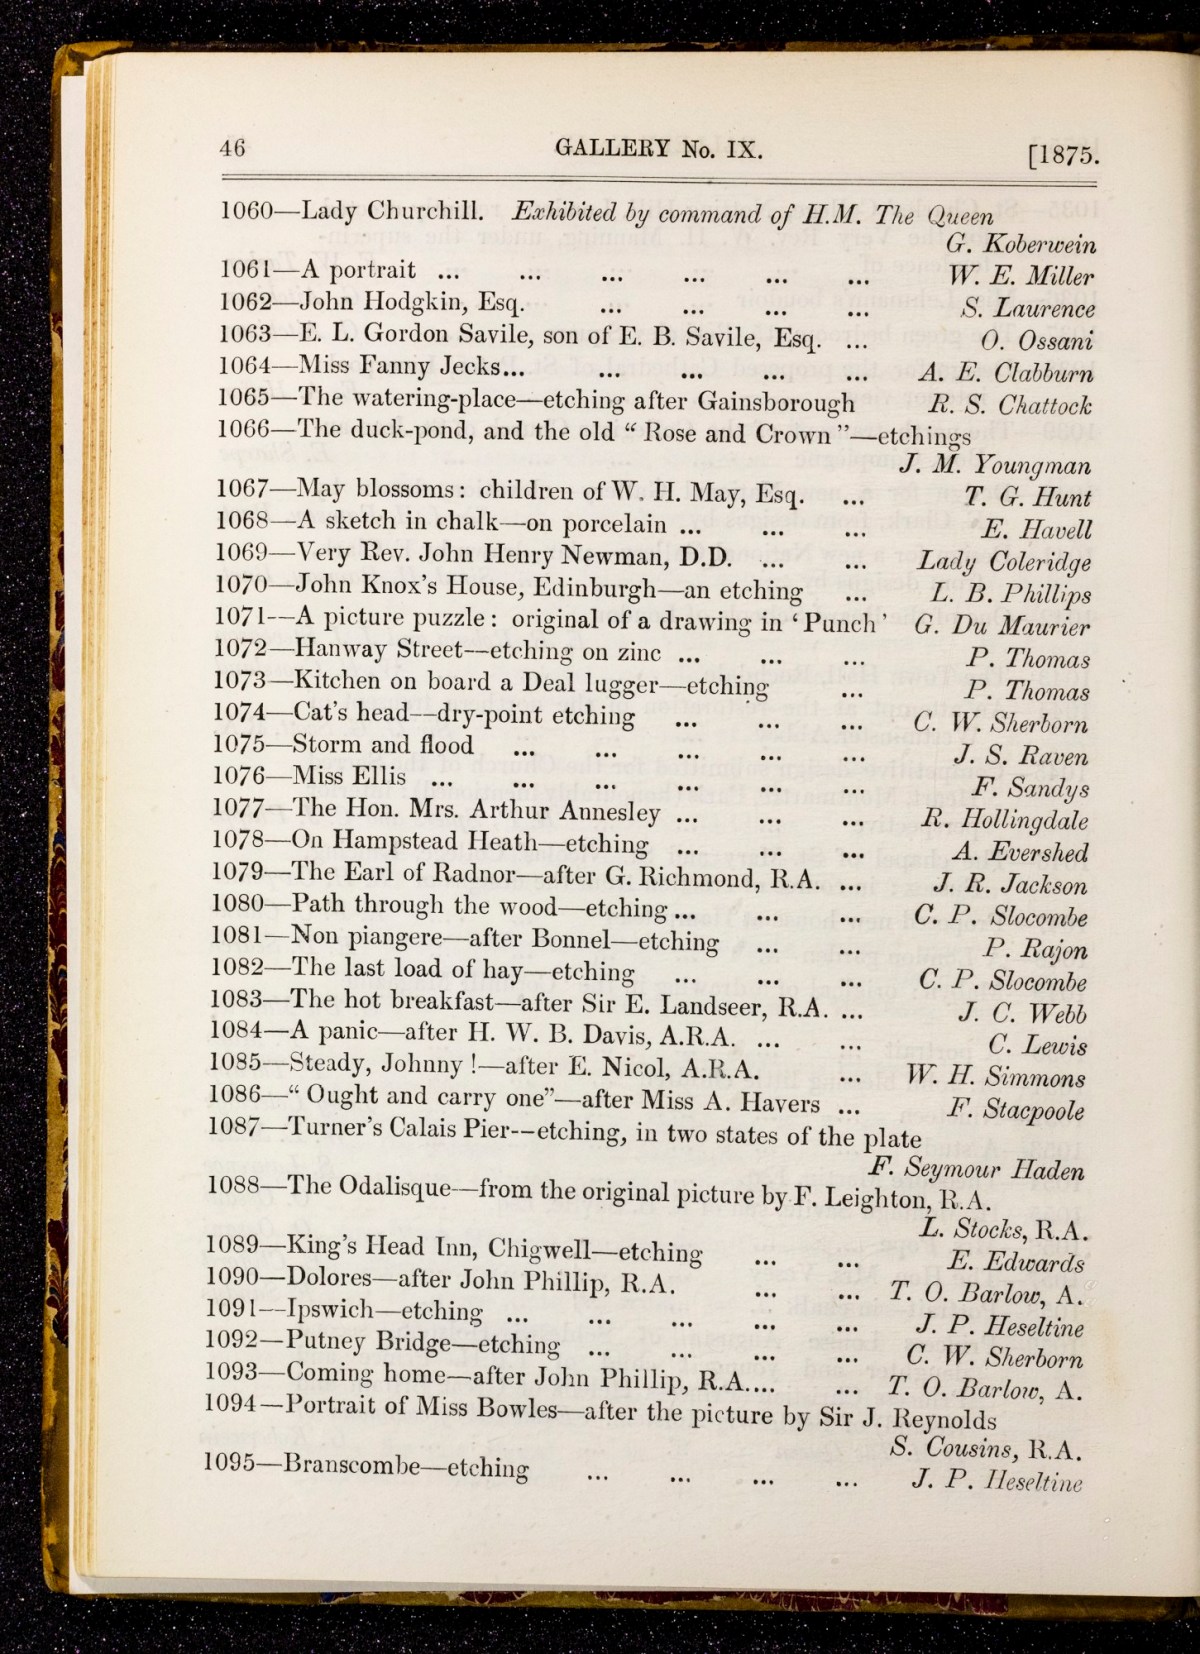 46 GALLERY No. IX. [1875.
1060—Lady Churchill. Exhibited by command of H.M. The Queen
G. Koberwein
1061—A portrait ... ... ... ... ... ... W. E. Miller
1062—John Hodgkin, Esq. ... ... ... ... S. Laurence
1063—E. L. Gordon Savile, son of E. B. Savile, Esq. ... O. Ossani
1064—Miss Fanny Jecks... ... ... ... ... A. E. Clabburn
1065—The watering-place—etching after Gainsborough R. S. Chattock
1066—The duck-pond, and the old “ Rose and Crown ”—etchings
J. M. Youngman
1067—May blossoms: children of W. H. May, Esq. ... T. G. Hunt
1068—A sketch in chalk—on porcelain ... ... ... E. Havell
1069—Very Rev. John Henry Newman, D.D. ... ... Lady Coleridge
1070—John Knox’s House, Edinburgh—an etching ... L. B. Phillips
1071—A picture puzzle: original of a drawing in ‘Punch’ G. Du Maurier
1072—Hanway Street—etching on zinc ... ... ... P. Thomas
1073—Kitchen on board a Deal lugger—etching ... P. Thomas
1074—Cat’s head—dry-point etching ... ... ... C. W. Sherborn
1075—Storm and flood ... ... ... ... ... J. S. Raven
1076—Miss Ellis ... ... ... ... ... ... F. Sandys
1077—The Hon. Mrs. Arthur Annesley ... ... ... R. Hollingdale
1078—On Hampstead Heath—etching ... ... ... A. Evershed
1079—The Earl of Radnor—after G. Richmond, R.A. ... J. R. Jackson
1080—Path through the wood—etching ... ... ... C. P. Slocombe
1081—Non piangere—after Bonnel—etching ... ... P. Rajon
1082—The last load of hay—etching ... ... ... C. P. Slocombe
1083—The hot breakfast—after Sir E. Landseer, R.A. ... J. C. Webb
1084—A panic—after H. W. B. Davis, A.R.A. ... ... C. Lewis
1085—Steady, Johnny !—after E. Nicol, A.R.A. ... W. H. Simmons
1086—“ Ought and carry one”—after Miss A. Havers ... F. Stacpoole
1087—Turner’s Calais Pier—etching, in two states of the plate
F. Seymour Haden
1088—The Odalisque—from the original picture by F. Leighton, R.A.
L. Stocks, R.A.
1089—King’s Head Inn, Chigwell—etching ... ... E. Edwards
1090—Dolores—after John Phillip, R.A. ... ... T. O. Barlow, A.
1091—Ipswich—etching ... ... ... ... ... J. P. Heseltine
1092—Putney Bridge—etching ... ... ... ... C. W. Sherborn
1093—Coming home—after John Phillip, R.A.... ... T. O. Barlow, A.
1094—Portrait of Miss Bowles—after the picture by Sir J. Reynolds
S. Cousins, R.A.
1095—Branscombe—etching ... ... ... ... J. P. Heseltine